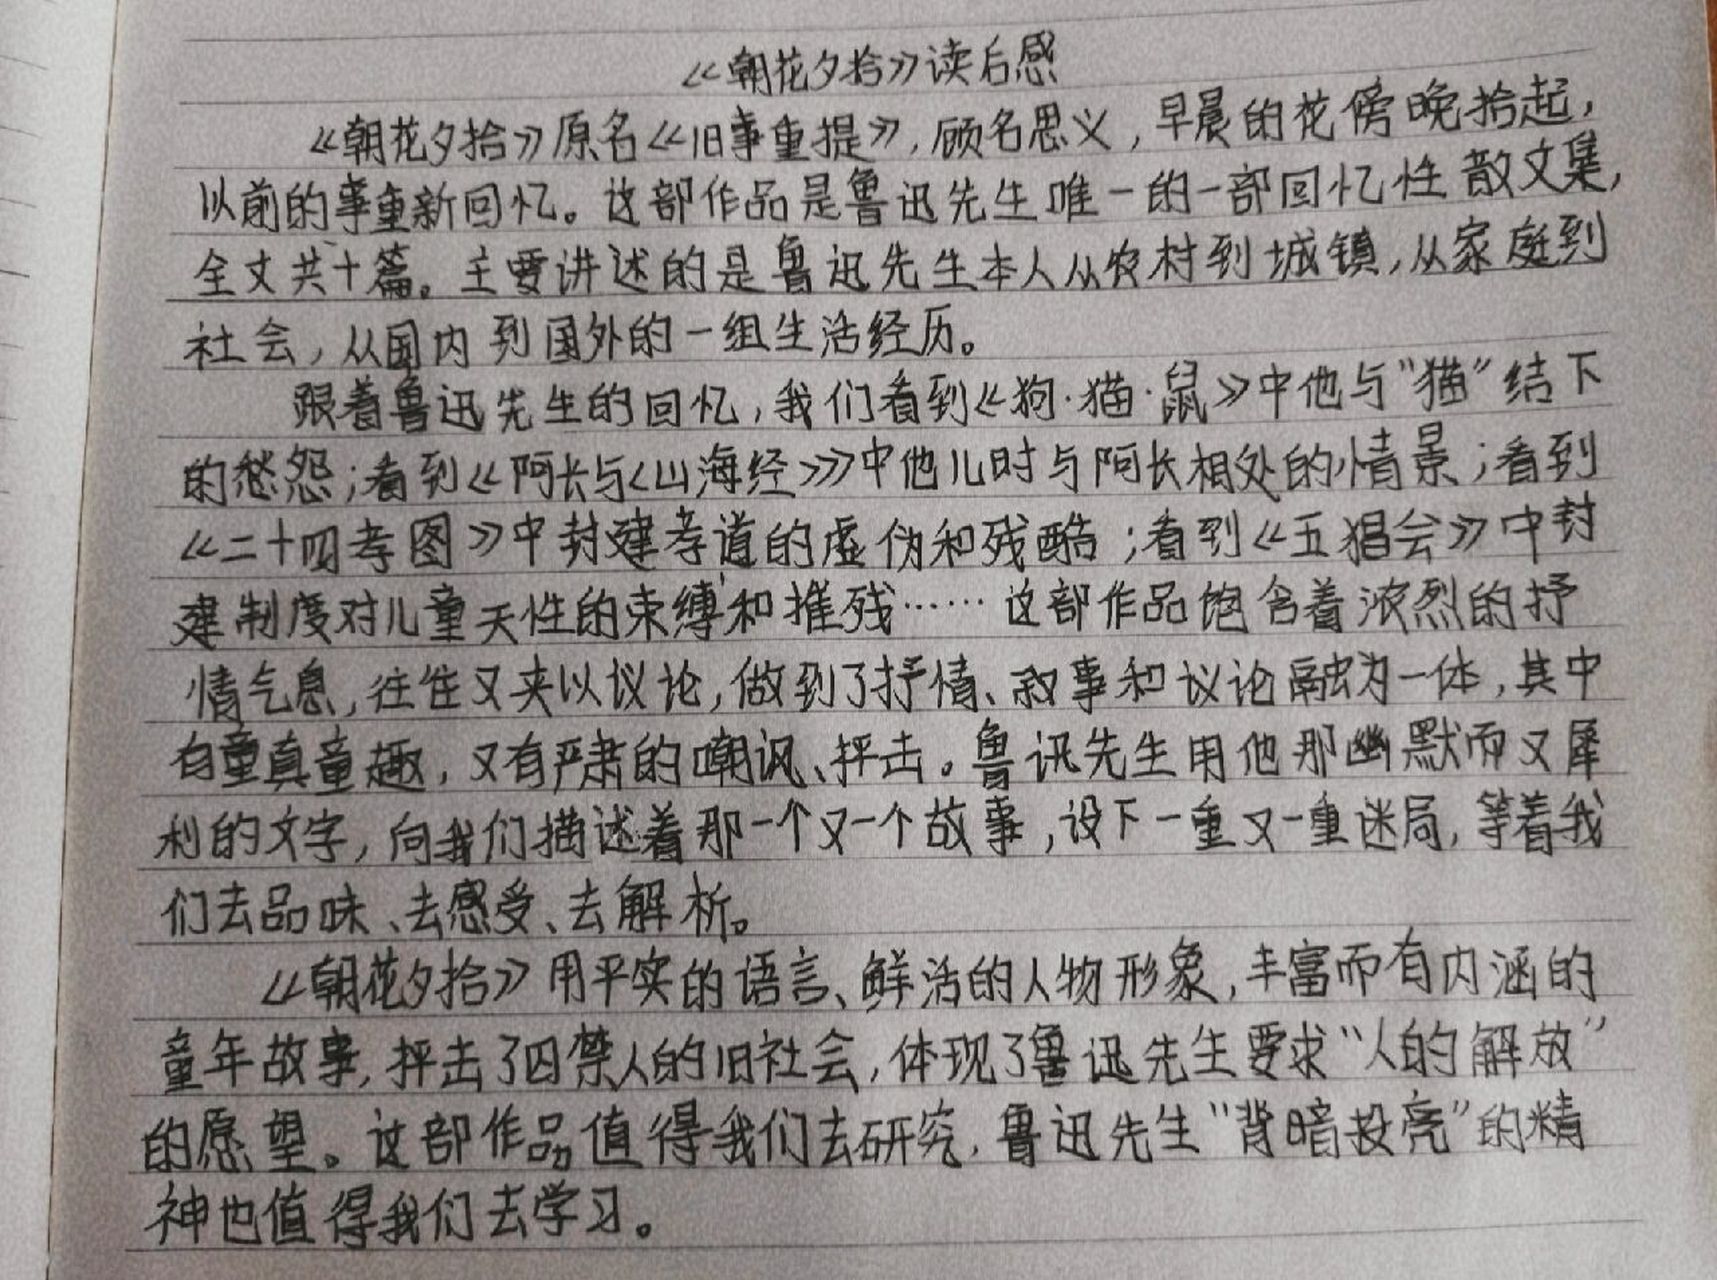 《朝花夕拾》读后感
《朝花夕拾》原名《旧事重提》,顾名思义,早晨的花傍晚拾起,
以前的事重新回忆。这部作品是鲁迅先生唯一的一部回忆性散文集,
全文共十篇。主要讲述的是鲁迅先生本人从农村到城镇,从家庭到
社会,从国内到国外的一组生活经历。
跟着鲁迅先生的回忆,我们看到《狗·猫·鼠》中他与“猫”结下
的愁怨;看到《阿长与〈山海经〉》中他儿时与阿长相处的情景;看到
《二十四孝图》中封建孝道的虚伪和残酷;看到《五猖会》中封
建制度对儿童天性的束缚和推残……这部作品饱含着浓烈的抒
情气息,往往又夹以议论,做到了抒情、叙事和议论融为一体,其中
有童真童趣,又有严肃的嘲讽、抨击。鲁讯先生用他那幽默而又犀
利的文字,向我们描述着那一个又一个故事,设下一重又一重迷局,等着我
们去品味、去感受、去解析。
《朝花夕拾》用平实的语言、鲜活的人物形象,丰富而有内涵的
童年故事,抨击了囚禁人的旧社会,体现了鲁迅先生要求“人的解放”
的愿望。这部作品值得我们去研究,鲁迅先生“背暗投亮”的精
神也值得我们去学习。